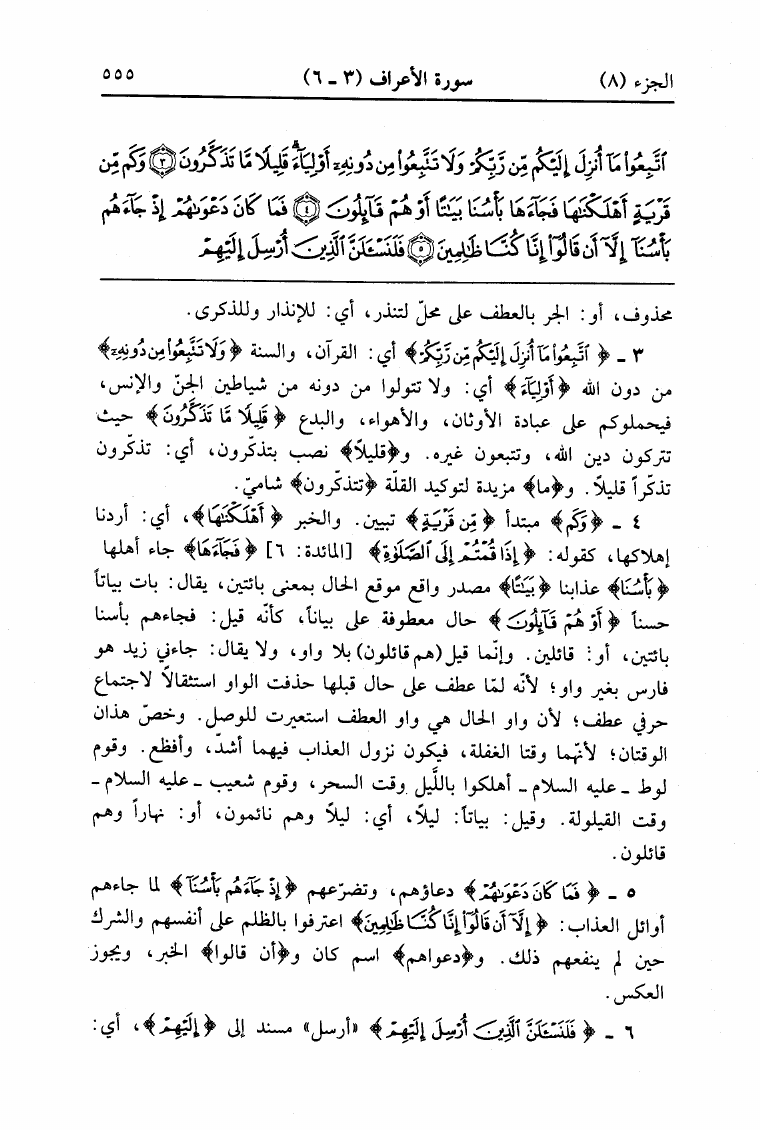 الجزء (٨) سورة الأعراف (٣ - ٦) ٥٥٥
ٱتَّبِعُوا۟ مَآ أُنزِلَ إِلَيْكُم مِّن رَّبِّكُمْ وَلَا تَتَّبِعُوا۟ مِن دُونِهِۦٓ أَوْلِيَآءَ ۗ قَلِيلًا مَّا تَذَكَّرُونَ ٣ وَكَم مِّن
قَرْيَةٍ أَهْلَكْنَٰهَا فَجَآءَهَا بَأْسُنَا بَيَٰتًا أَوْ هُمْ قَآئِلُونَ ٤ فَمَا كَانَ دَعْوَىٰهُمْ إِذْ جَآءَهُم
بَأْسُنَآ إِلَّآ أَن قَالُوٓا۟ إِنَّا كُنَّا ظَٰلِمِينَ ٥ فَلَنَسْـَٔلَنَّ ٱلَّذِينَ أُرْسِلَ إِلَيْهِمْ
محذوف، أو: الجر بالعطف على محلّ لتنذر، أي: للإنذار وللذكرى.
٣ - ﴿ٱتَّبِعُوا۟ مَآ أُنزِلَ إِلَيْكُم مِّن رَّبِّكُمْ﴾ أي: القرآن، والسنة ﴿وَلَا تَتَّبِعُوا۟ مِن دُونِهِۦٓ﴾
من دون الله ﴿أَوْلِيَآءَ﴾ أي: ولا تتولوا من دونه من شياطين الجنّ والإنس،
فيحملوكم على عبادة الأوثان، والأهواء، والبدع ﴿قَلِيلًا مَّا تَذَكَّرُونَ﴾ حيث
تتركون دين الله، وتتبعون غيره. و﴿قليلاً﴾ نصب بتذكّرون، أي: تذكّرون
تذكّراً قليلاً. و﴿ما﴾ مزيدة لتوكيد القلّة ﴿تتذكّرون﴾ شاميّ.
٤ - ﴿وَكَم﴾ مبتدأ ﴿مِّن قَرْيَةٍ﴾ تبيين. والخبر ﴿أَهْلَكْنَٰهَا﴾، أي: أردنا
إهلاكها، كقوله: ﴿إِذَا قُمْتُمْ إِلَى ٱلصَّلَوٰةِ﴾ [المائدة: ٦] ﴿فَجَآءَهَا﴾ جاء أهلها
﴿بَأْسُنَا﴾ عذابنا ﴿بَيَٰتًا﴾ مصدر واقع موقع الحال بمعنى بائتين، يقال: بات بياتاً
حسناً ﴿أَوْ هُمْ قَآئِلُونَ﴾ حال معطوفة على بياتاً، كأنّه قيل: فجاءهم بأسنا
بائتين، أو: قائلين. وإنّما قيل (هم قائلون) بلا واو، ولا يقال: جاءني زيد هو
فارس بغير واو؛ لأنّه لمّا عطف على حال قبلها حذفت الواو استثقالاً لاجتماع
حرفي عطف؛ لأن واو الحال هي واو العطف استعيرت للوصل. وخصّ هذان
الوقتان؛ لأنّهما وقتا الغفلة، فيكون نزول العذاب فيهما أشدّ، وأفظع. وقوم
لوط - عليه السلام - أهلكوا باللَّيل وقت السحر، وقوم شعيب - عليه السلام -
وقت القيلولة. وقيل: بياتاً: ليلاً، أي: ليلاً وهم نائمون، أو: نهاراً وهم
قائلون.
٥ - ﴿فَمَا كَانَ دَعْوَىٰهُمْ﴾ دعاؤهم، وتضرّعهم ﴿إِذْ جَآءَهُم بَأْسُنَآ﴾ لما جاءهم
أوائل العذاب: ﴿إِلَّآ أَن قَالُوٓا۟ إِنَّا كُنَّا ظَٰلِمِينَ﴾ اعترفوا بالظلم على أنفسهم والشرك
حين لم ينفعهم ذلك. و﴿دعواهم﴾ اسم كان و﴿أن قالوا﴾ الخبر، ويجوز
العكس.
٦ - ﴿فَلَنَسْـَٔلَنَّ ٱلَّذِينَ أُرْسِلَ إِلَيْهِمْ﴾ «أرسل» مسند إلى ﴿إِلَيْهِمْ﴾، أي: